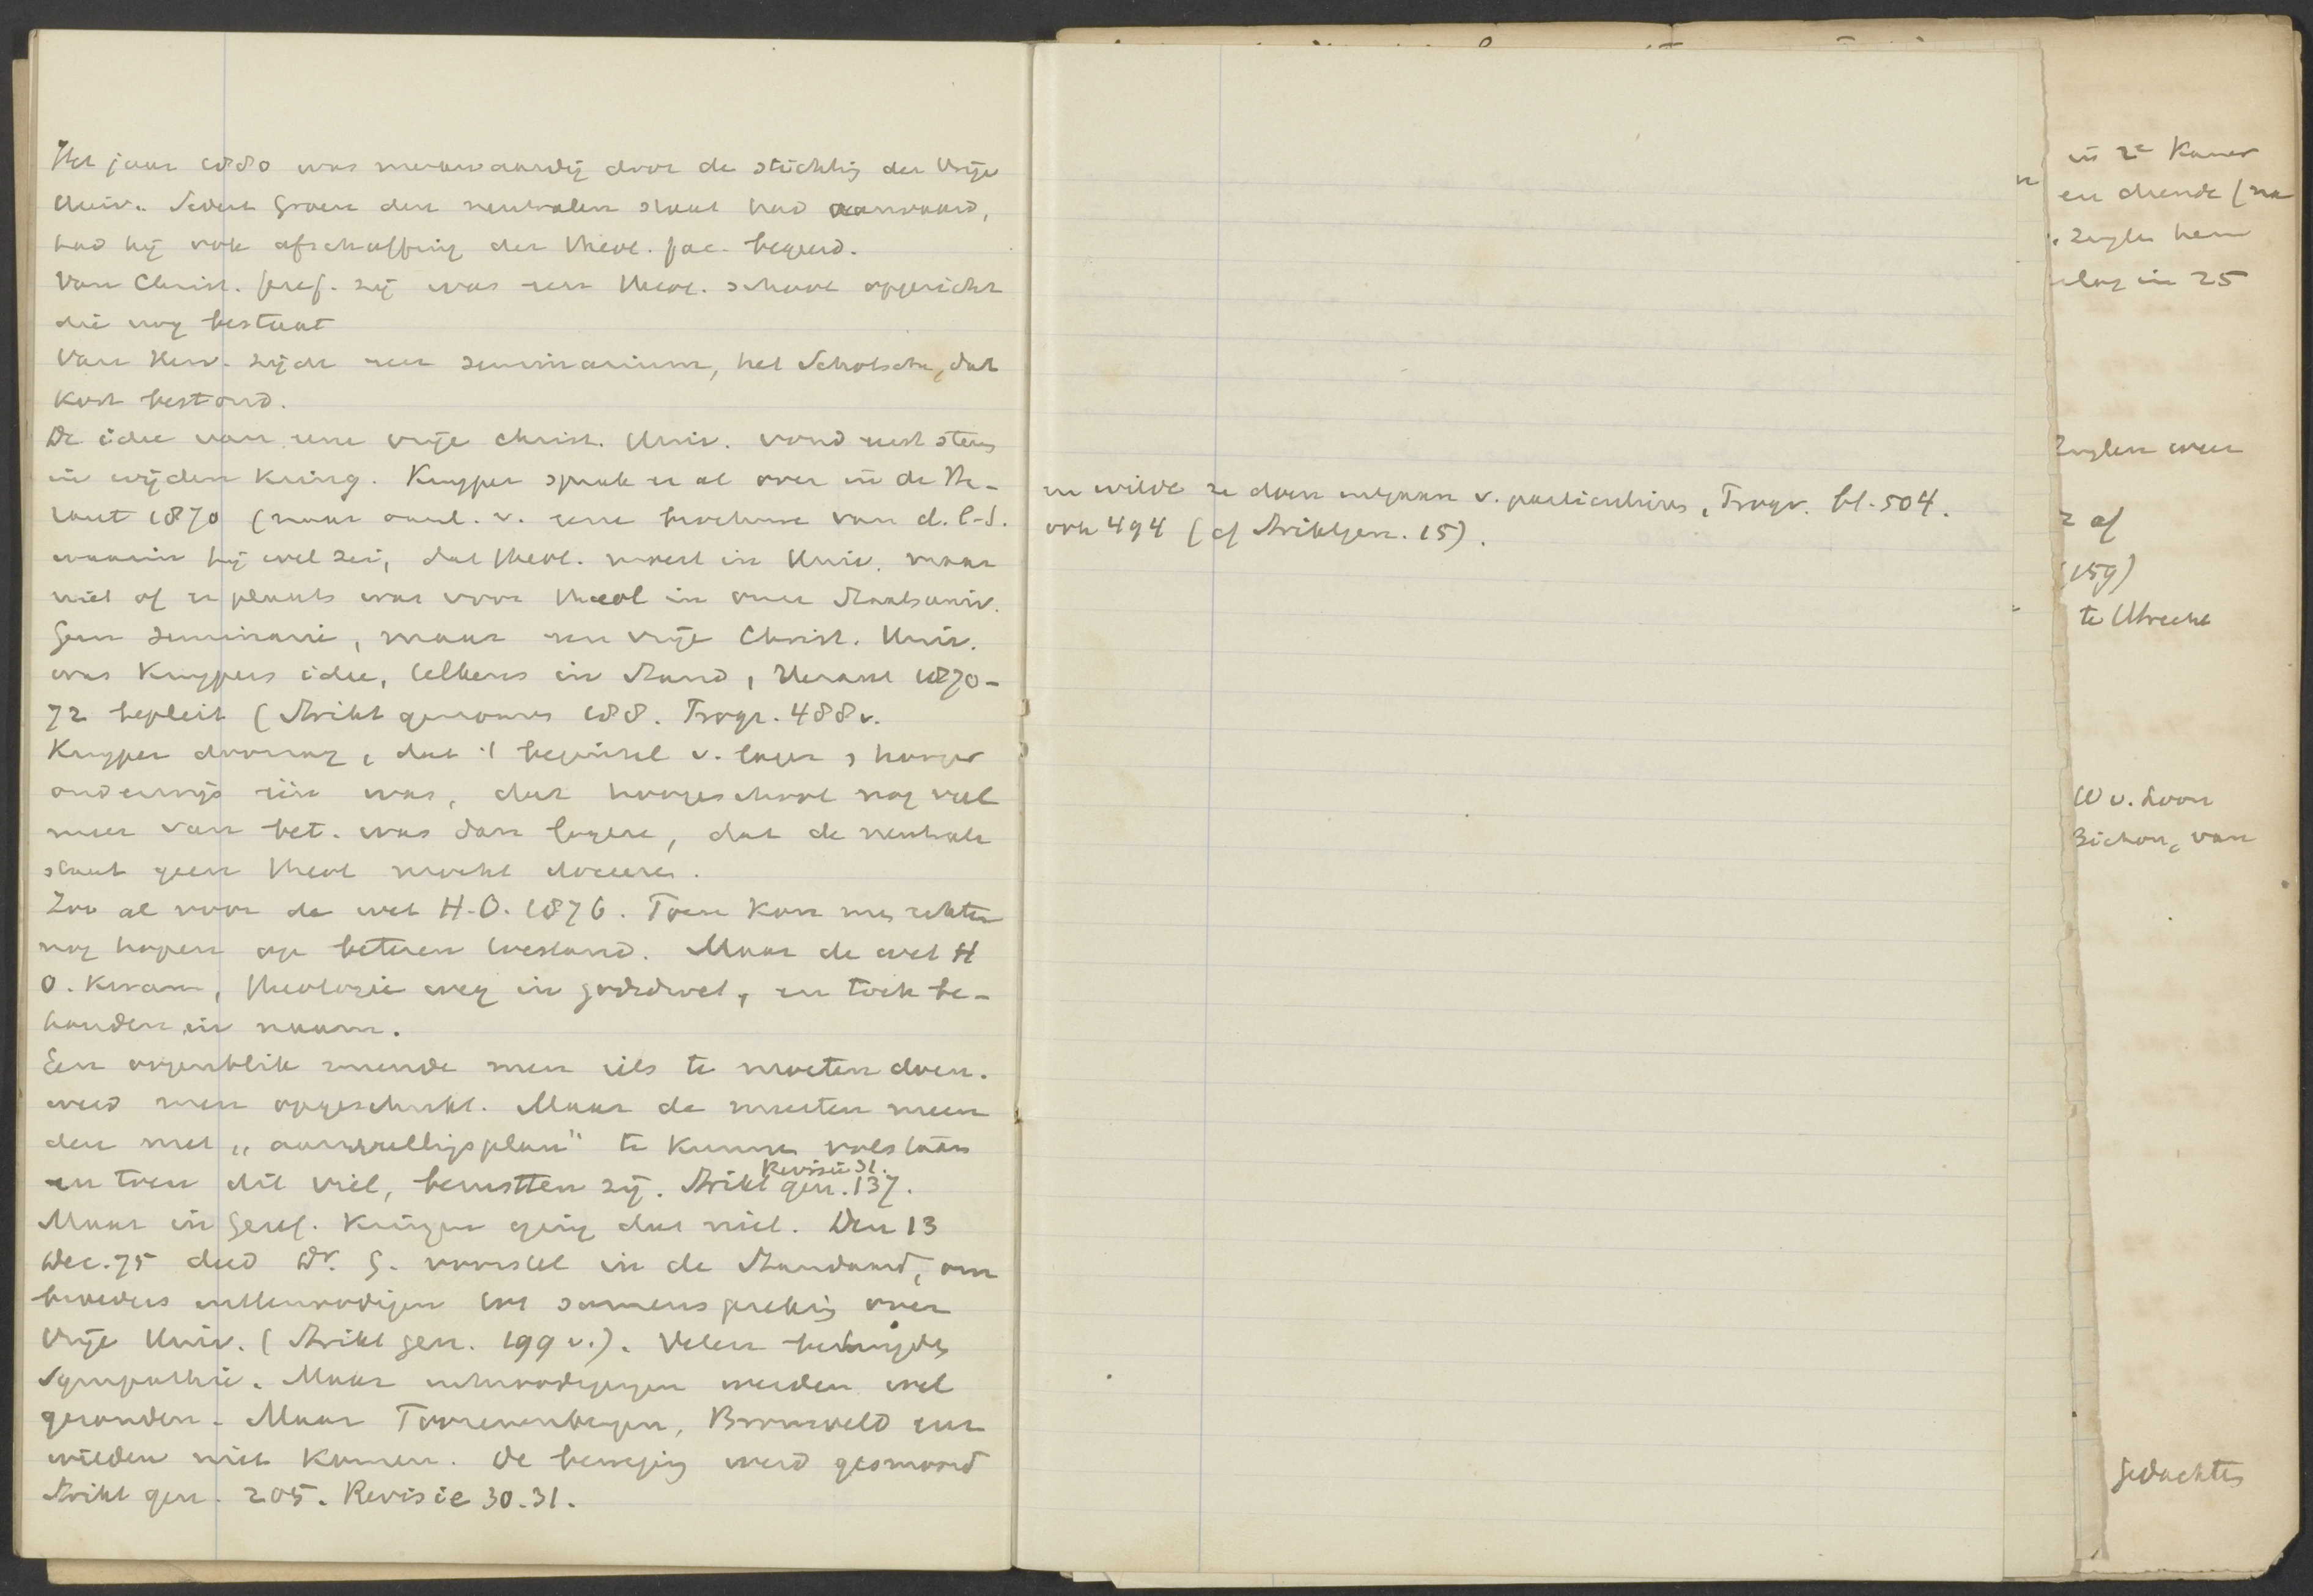 Het jaar 1880 was merkwaardig door de stichting der Vrije
Univ. Sedert Groen den neutralen staat had aanvaard,
had hij ook afschaffing der theol. fac. begeerd.
Van Christ. geref. zij was een theol. school opgericht
die nog bestaat
Van Herv. zijde een seminarium, het Schotsche, dat
kort bestond.
De idee van eene vrije christ. Univ. vond eerst steun
in wijden kring. Kuyper sprak er al over in de He-
raut 1870 (naar aanl. v. eene brochure van d. l. S.
waarin hij wel zei, dat theol. moest in Univ. maar
niet of er plaats was voor theol in onze Staatsuniv.
Geen seminarie, maar een vrije Christ. Univ.
was Kuypers idee, telkens in Stand, Heraut 1870-
72 bepleit (Strikt genomen 188. Progr. 488 v.
Kuyper drong, dat 't beginsel v. lager & hooger
onderwijs één was, dat hoogeschool nog veel
meer van bet. was dan lagere, dat de neutrale
staat geen theol mocht doceeren.
Zoo al voor de wet H.O. 1876. Toen kon men echter
nog hopen op beteren toestand. Maar de wet H
O. kwam, theologie weg in godsd.wet, en toch be-
houden in naam.
Een oogenblik meende men iets te moeten doen.
werd men opgeschrikt. Maar de meesten meen
den met „aanvullingsplan" te kunnen volstaan
Revisie 31.
en toen dit viel, berustten zij. Strikt gen. 137.
Maar in Geref. kringen ging dat niet. Den 13
Dec. 75 deed Dr. G. voorstel in de Standaard, om
broeders uit te noodigen tot samenspreking over
Vrije Univ. (Strikt gen. 199 v.). Velen betuigden
Sympathie. Maar uitnoodigingen werden wel
gezonden. Maar Toorenenbergen, Bronsveld enz
wilden niet komen. De beweging werd gesmoord
Strikt gen. 205. Revisie 30.31.
en wilde ze doen uitgaan v. particulieren, Progr. bl. 504.
ook 494 (cf Strikt gen. 15).
in 2e Kamer
en diende (na
hem
in 25
weer
of
159)
te Utrecht
W v. Loon
Bichon, van
gedachten